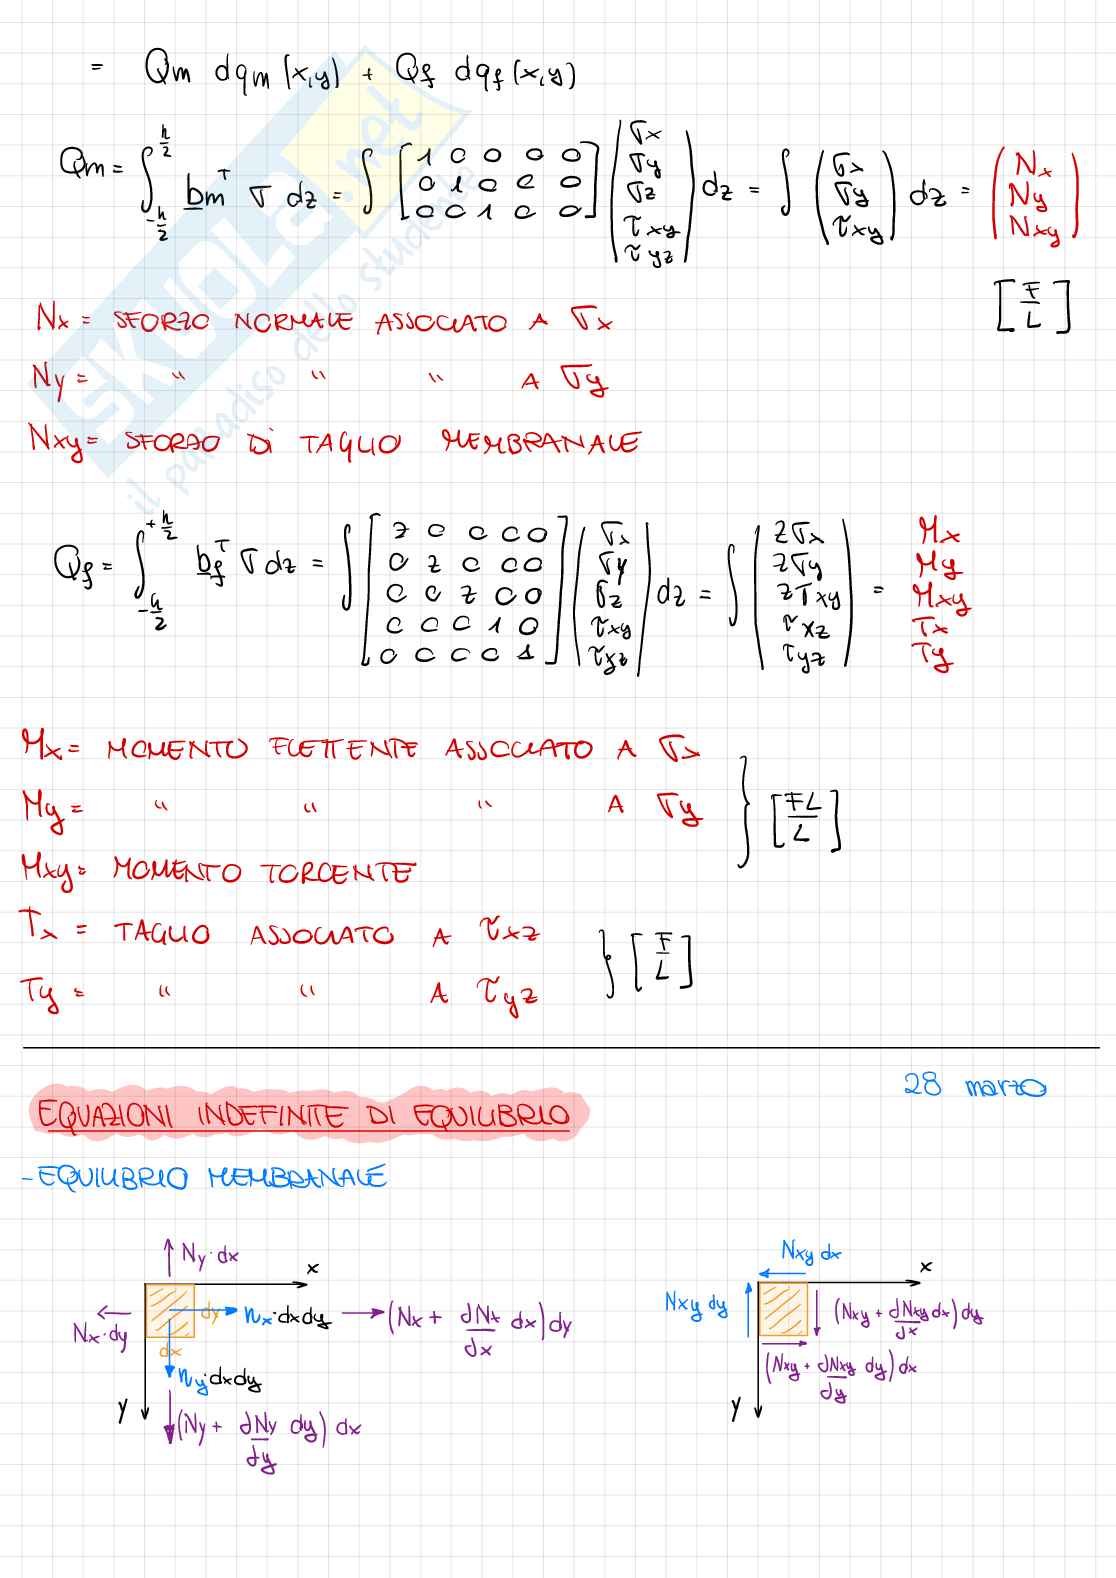 = Qm dqm (x,y) + Qf dqf (x,y)
Qm = ∫_{-h/2}^{h/2} bm^T σ dz = ∫ [1 0 0 0 0; 0 1 0 0 0; 0 0 1 0 0] (σx; σy; σz; τxy; τyz) dz = ∫ (σx; σy; τxy) dz = (Nx; Ny; Nxy)
[F/L]
Nx = SFORZO NORMALE ASSOCIATO A σx
Ny = " " " A σy
Nxy = SFORZO DI TAGLIO MEMBRANALE
Qf = ∫_{-h/2}^{+h/2} bf^T σ dz = ∫ [z 0 0 0 0; 0 z 0 0 0; 0 0 z 0 0; 0 0 0 1 0; 0 0 0 0 1] (σx; σy; σz; τxy; τyz) dz = ∫ (zσx; zσy; zτxy; τxz; τyz) = Mx My Mxy Tx Ty
Mx = MOMENTO FLETTENTE ASSOCIATO A σx
My = " " " A σy } [FL/L]
Mxy = MOMENTO TORCENTE
Tx = TAGLIO ASSOCIATO A τxz
} [F/L]
Ty = " " A τyz
28 marzo
EQUAZIONI INDEFINITE DI EQUILIBRIO
- EQUILIBRIO MEMBRANALE
Ny·dx
x
Nx·dy
dy
nx·dxdy
(Nx + ∂Nx/∂x dx) dy
dx
ny·dxdy
y
(Ny + ∂Ny/∂y dy) dx
Nxy dx
x
Nxy dy
(Nxy + ∂Nxy/∂x dx) dy
(Nxy + ∂Nxy/∂y dy) dx
y
SKUOLA.net
il paradiso dello studente